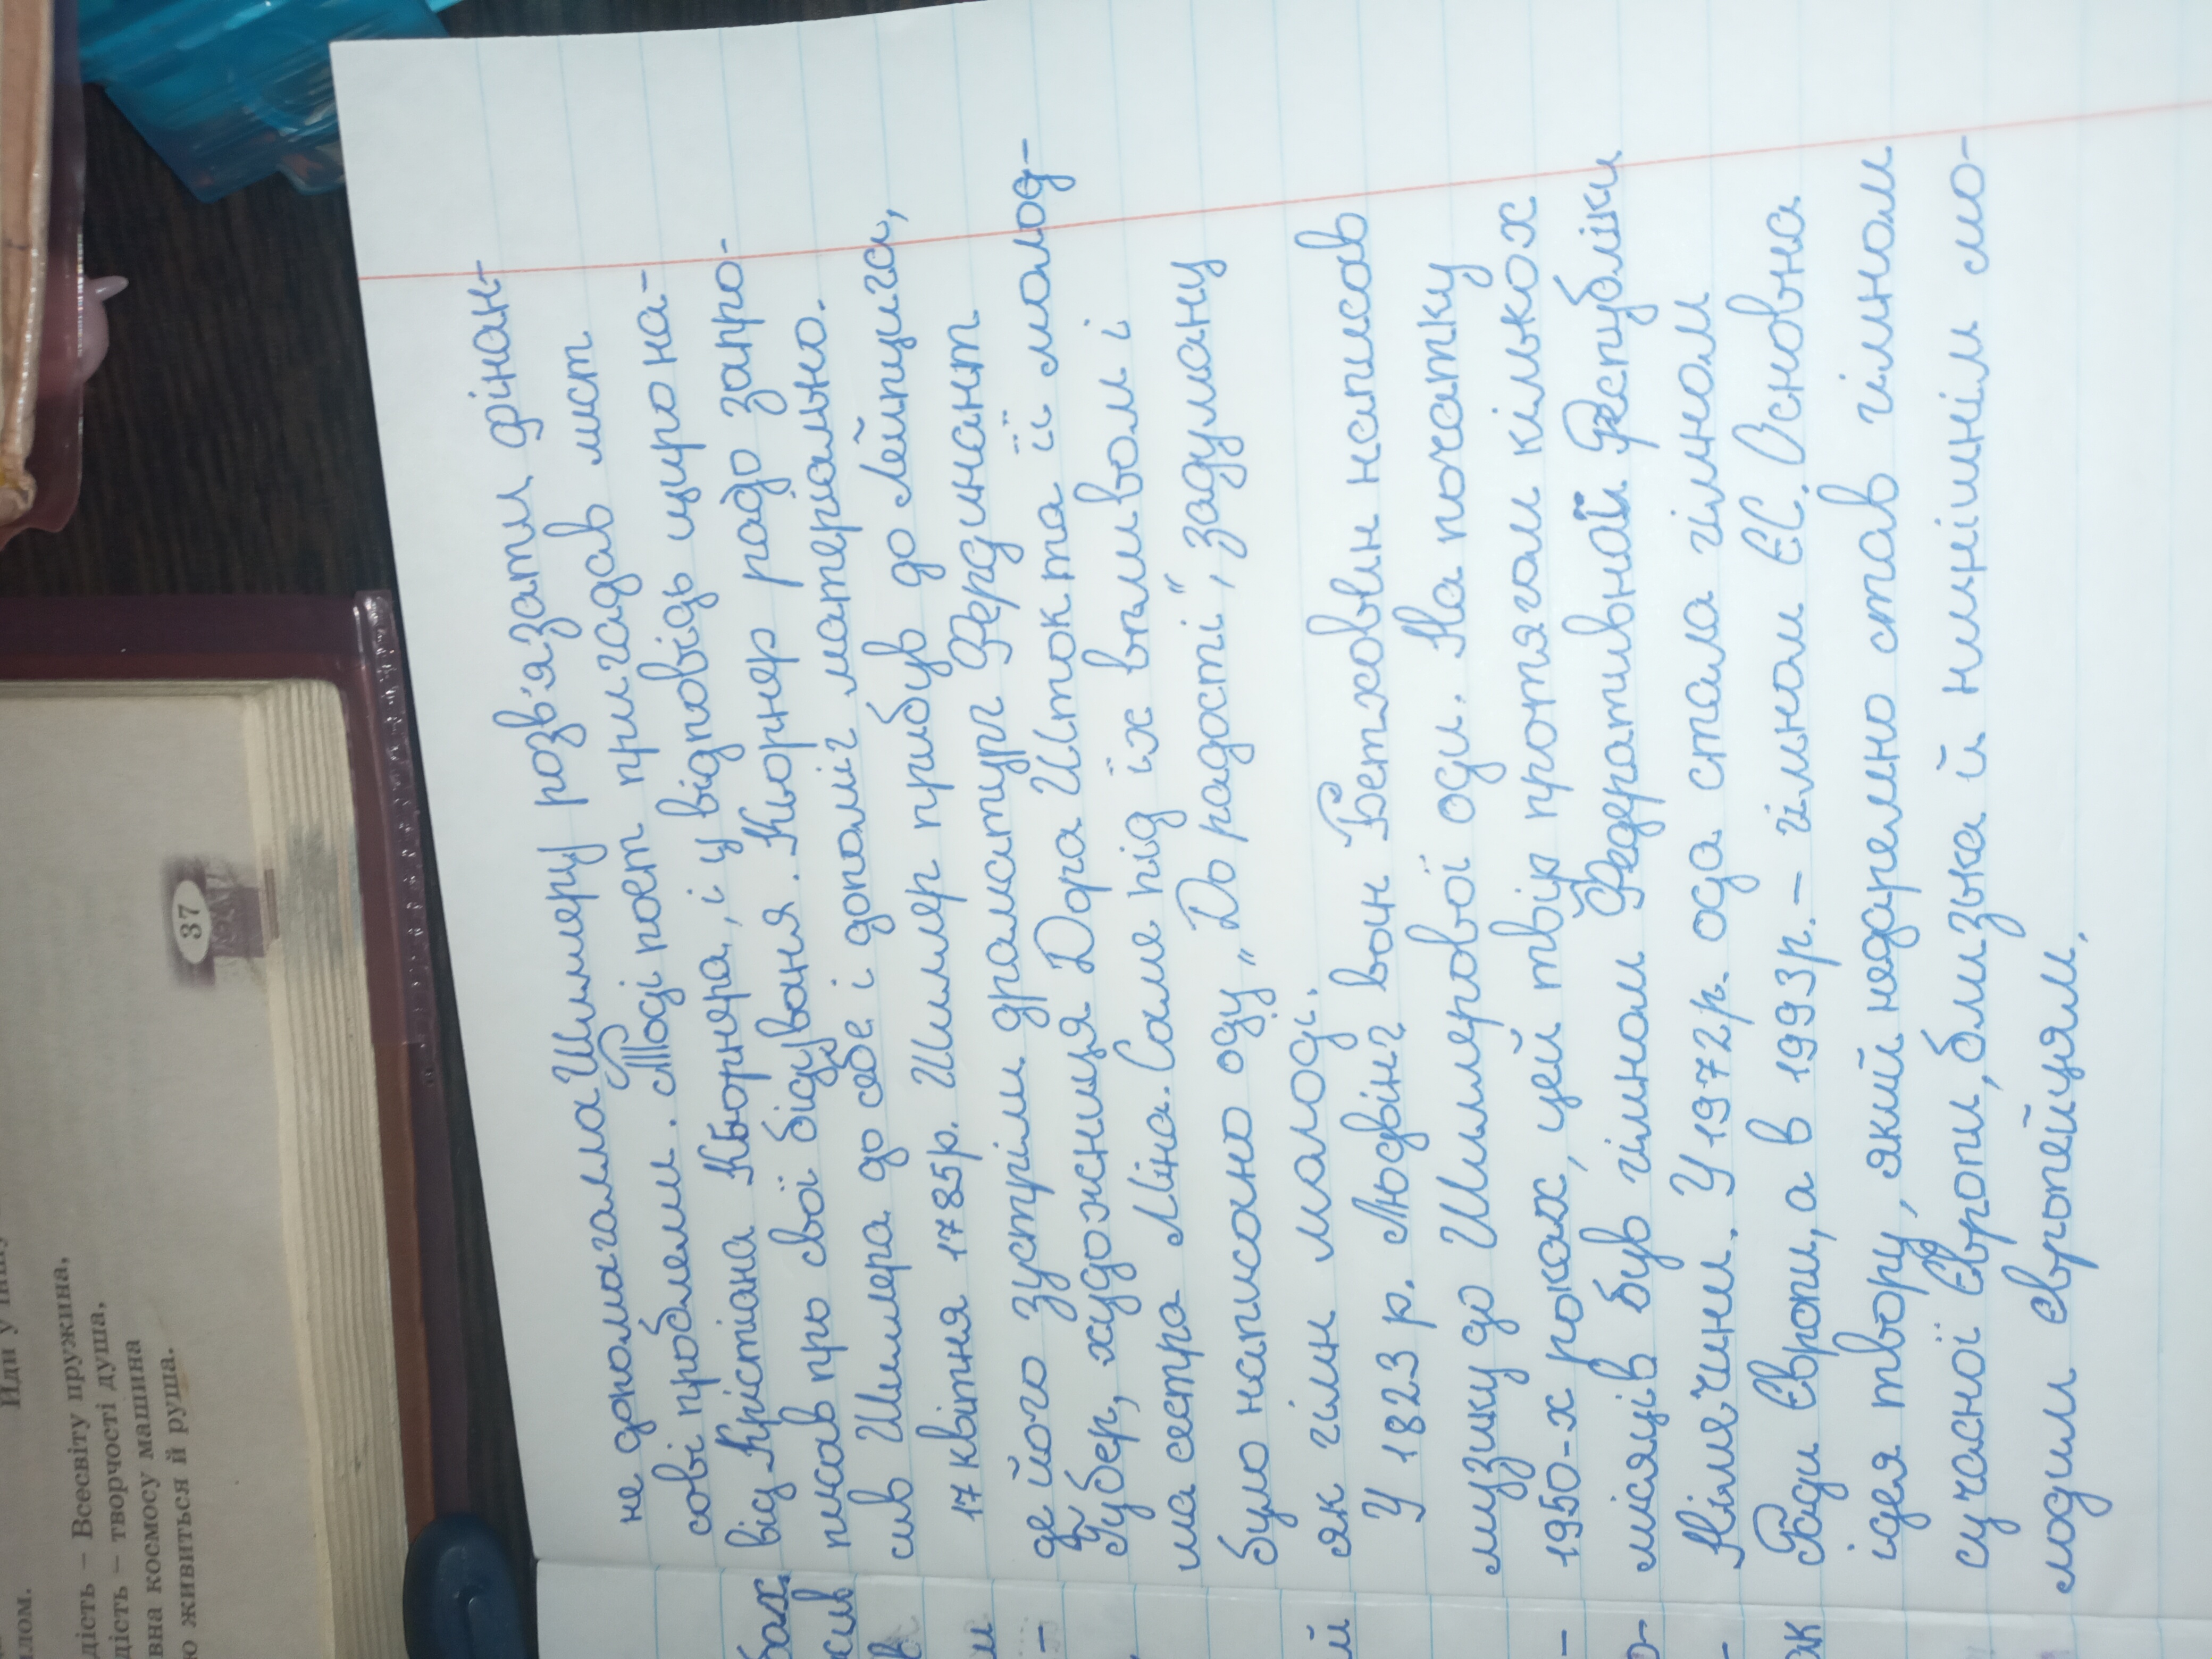 не допомагала Шиллеру розв'язати фінан-
сові проблеми. Тоді поет пригадав лист
від Крістіана Кьорнера, і у відповідь щиро на-
писав про свої бідування. Кьорнер радо запро-
сив Шиллера до себе і допоміг матеріально.
17 квітня 1785р. Шиллер прибув до Лейпцига,
де його зустріли драматург Фердинант
Губер, художниця Дора Шток та її молод-
ша сестра Міна. Саме під їх впливом і
було написано оду „До радості", задуману
як гімн молоді.
У 1823 р. Людвінг вон Бетховен написав
музику до Шиллерової оди. На початку
1950-х роках, цей твір протягом кількох
місяців був гімном Федеративной Республіки
Німяччини. У 1972р. ода стала гімном
Ради Європи, а в 1993р. – гімном ЄС. Основна
ідея твору, який недаремно став гімном
сучасної Європи, близька й нинішнім мо-
лодим європейцям.
бах
жив
в
и
-
й
-
о-
-
як
37
Йди у
лом.
дість – Всесвіту пружина,
дість – творчості душа,
вна космосу машина
ю живиться й руша.